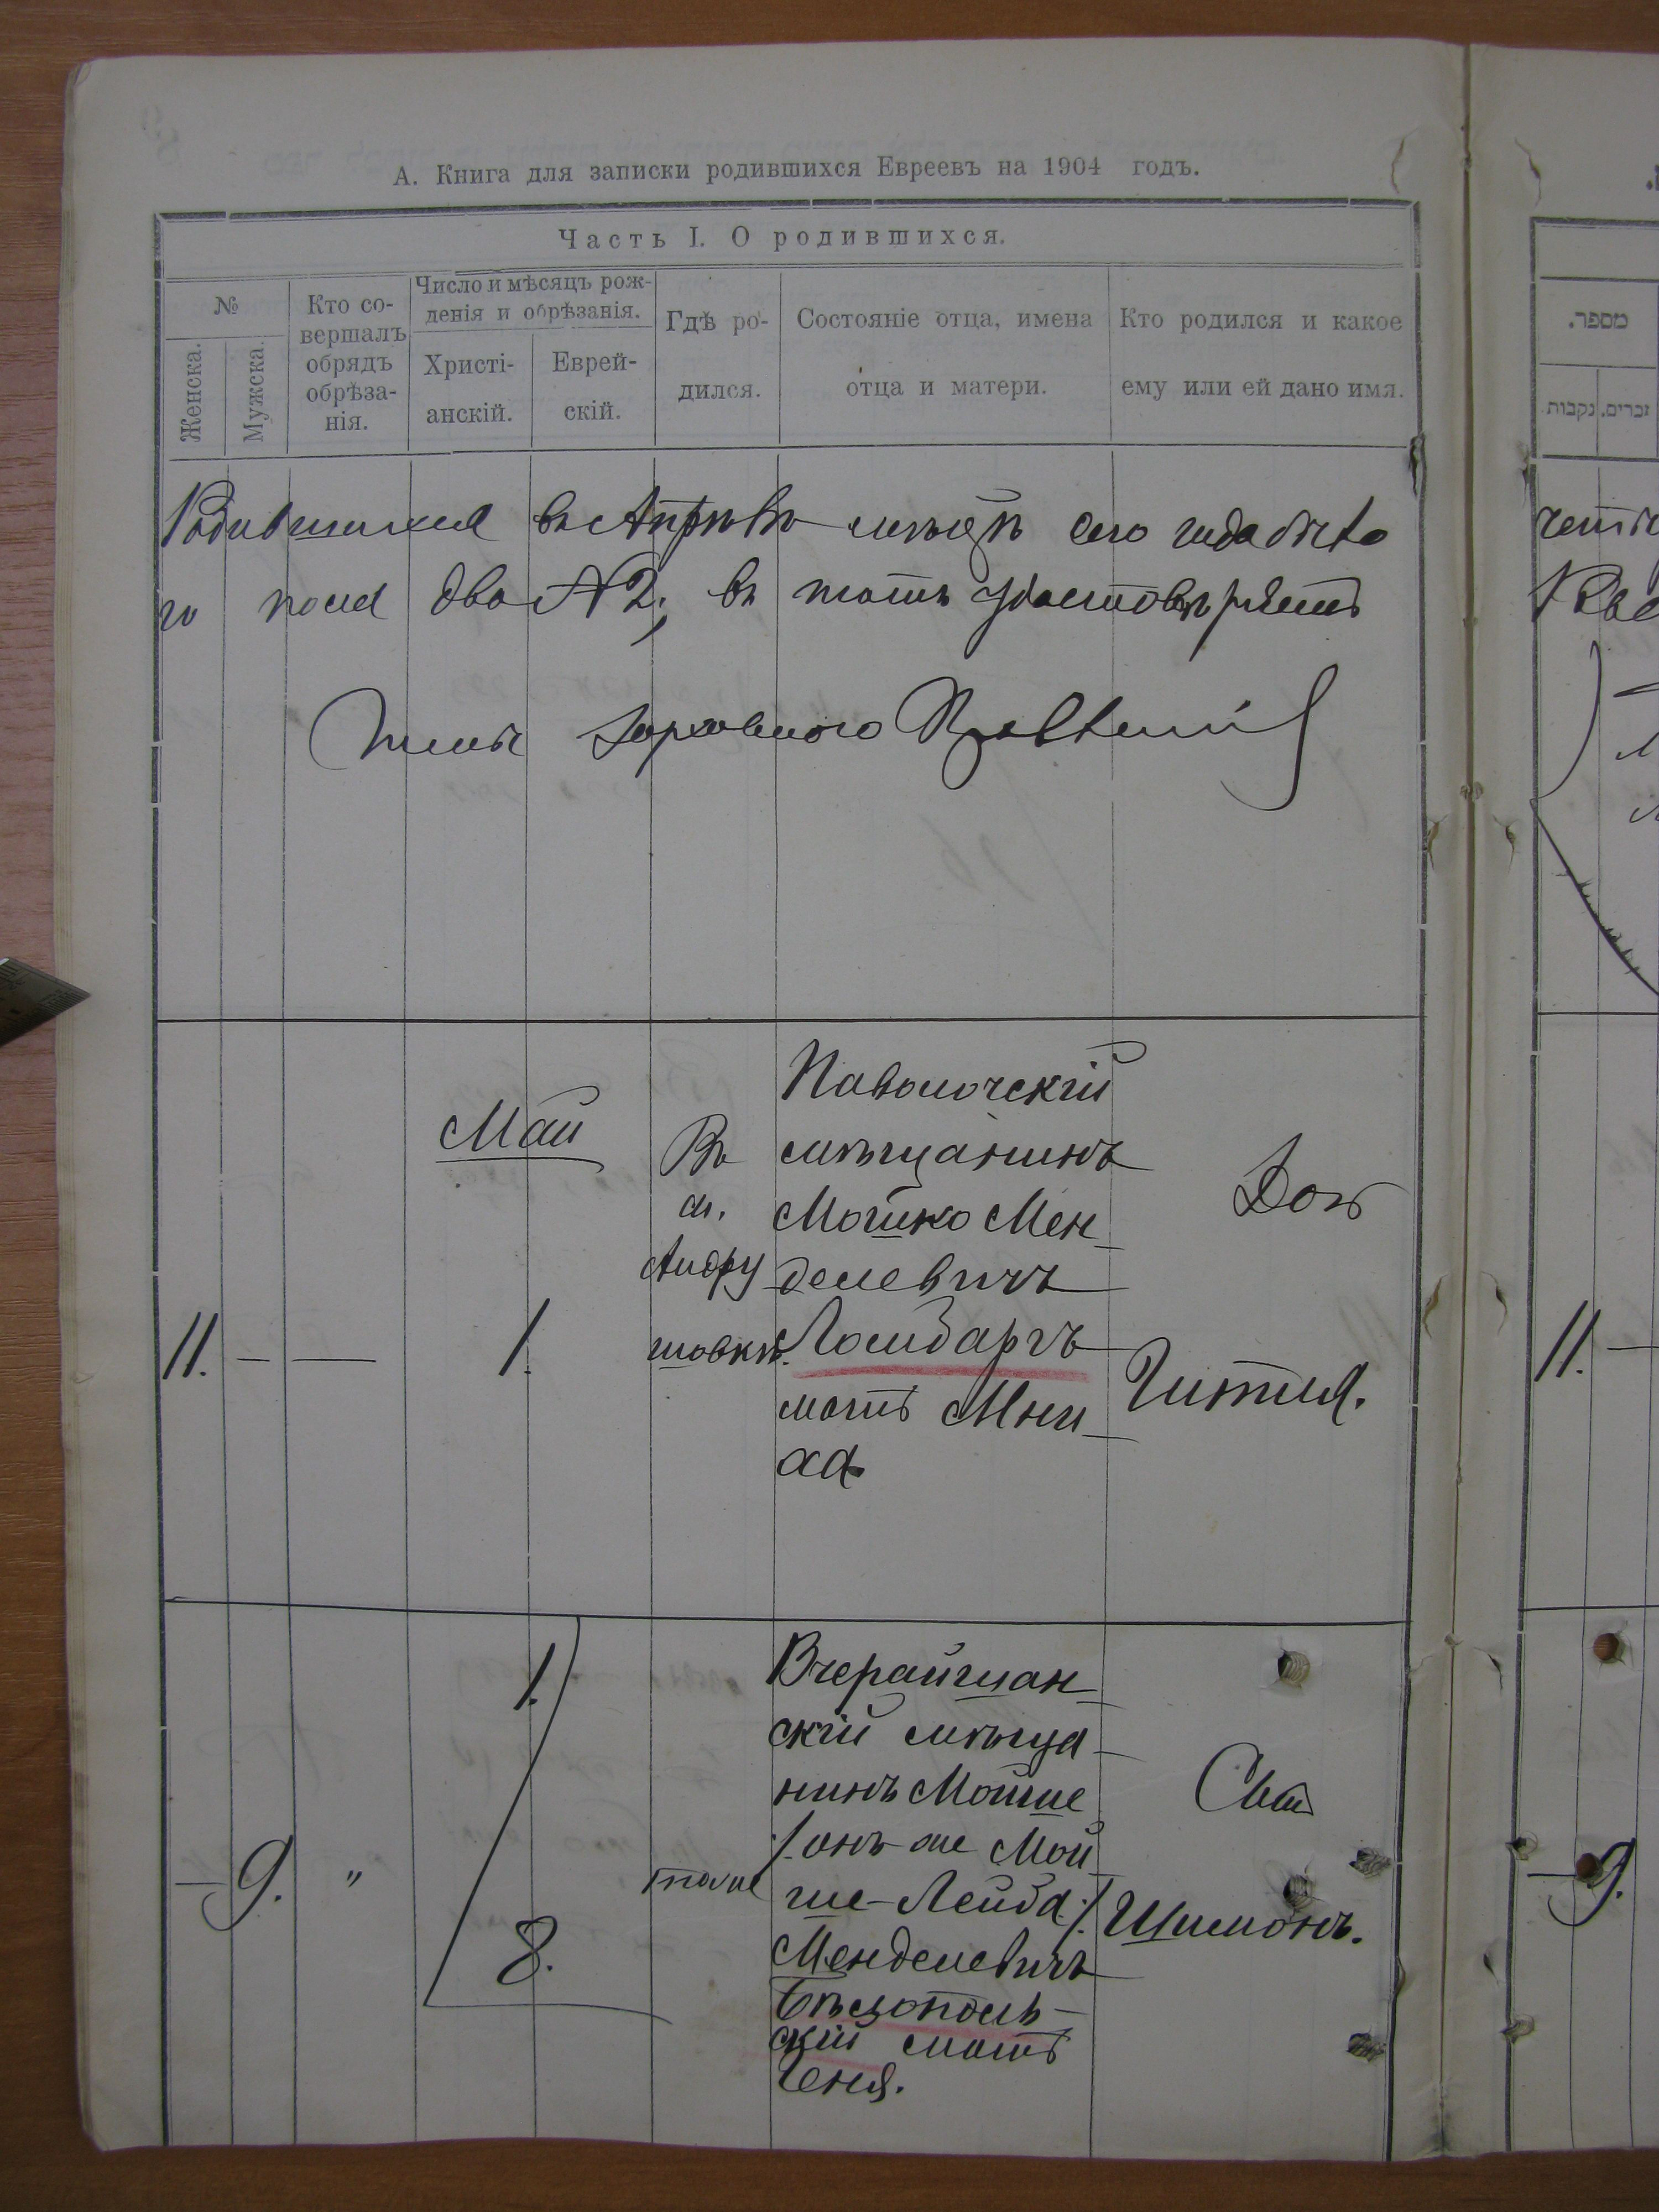 А. Книга для записки родившихся Евреевъ на 1904 годъ.
Часть I. О родившихся.
№
Женска.
Мужска.
Кто со-
вершалъ
обрядъ
обрѣза-
нія.
Число и мѣсяцъ рож-
денія и обрѣзанія.
Христі-
анскій.
Еврей-
скій.
Гдѣ ро-
дился.
Состояніе отца, имена
отца и матери.
Кто родился и какое
ему или ей дано имя.
Родившихся въ Апрѣлѣ мѣсяцѣ сего года
пола два № 2, въ томъ удостовѣряетъ
Май
11. — — 1.
Въ
м.
Андру
шовкѣ.
Паволочскій
мѣщанинъ
Мошко Мен-
делевичъ
Ломбаргъ
мать Мни-
ха
Дочь
Гитля.
— 9. "
1.
8.
тоже
Вчерайшан-
скій мѣща-
нинъ Мойше
/. онъ же Мой-
ше-Лейба ./
Менделевичъ
Бѣлопольс-
кій мать
Геня.
Сынъ
Шимонъ.
מספר.
זכרים.
נקבות
11. —
— 9.